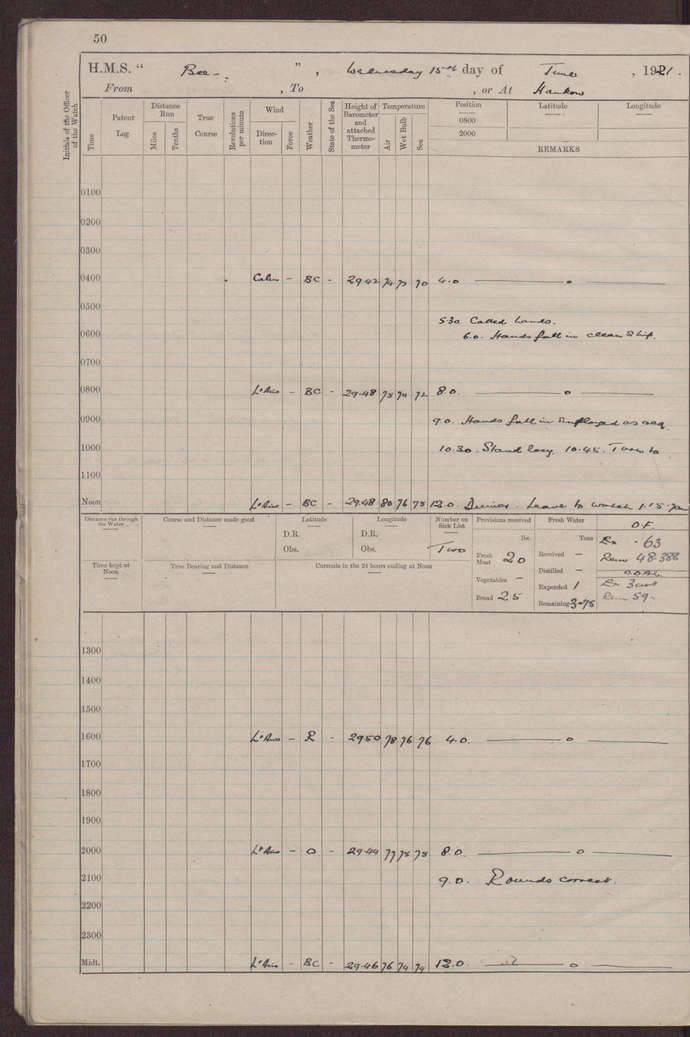 50
H.M.S. " Bee - " , Wednesday 15th day of June , 1921.
From , To , or At Hankow
Initials of the Officer of the Watch
Time
Patent Log
Distance Run
Miles
Tenths
True Course
Revolutions per minute
Wind
Direction
Force
Weather
State of the Sea
Height of Barometer and attached Thermometer
Temperature
Air
Wet Bulb
Sea
Position
0800
2000
Latitude
Longitude
REMARKS
0100
0200
0300
0400 Calm - BC - 29.42 74 72 70 4.0 o
0500
5.30 Called hands.
0600 6.0. Hands fall in clean Ship.
0700
0800 Lt Airs - BC - 29.48 75 74 72 8.0. o
0900 9.0. Hands fall in employed as req.
1000 10.30. Stand Easy. 10.45. Turn to
1100
Noon Lt Airs - BC - 29.48 80 76 75 12.0 Dinner. Leave to watch 1.15 pm
Distance run through the Water
Course and Distance made good
Latitude
D.R.
Obs.
Longitude
D.R.
Obs.
Number on Sick List
Two
Provisions received
lbs.
Fresh Meat 20
Vegetables -
Bread 25
Fresh Water
Tons
Received -
Distilled -
Expended 1
Remaining 3-75
O.F.
Ex .63
Rem 48.388
Rem 59-
Time kept at Noon
True Bearing and Distance
Currents in the 24 hours ending at Noon
1300
1400
1500
1600 Lt Airs - R - 29.50 78 76 76 4.0. o
1700
1800
1900
2000 Lt Airs - O - 29.44 77 75 75 8.0. o
2100 9.0. Rounds correct.
2200
2300
Midt. Lt Airs - BC - 29.46 76 74 74 12.0. o